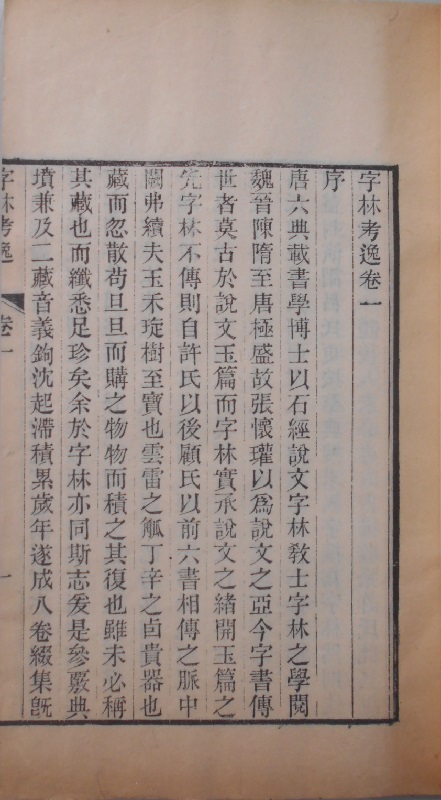 字林考逸卷一
序
唐六典載書學博士以石經說文字林敎士字林之學閱
魏晉陳隋至唐極盛故張懷瓘以爲說文之亞今字書傳
世者莫古於說文玉篇而字林實承說文之緒開玉篇之
先字林不傳則自許氏以後顧氏以前六書相傳之脈中
闕弗續夫玉禾琁樹至寶也雲雷之觚丁辛之卣貴器也
藏而忽散苟旦旦而購之物物而積之其復也雖未必稱
其藏也而纖悉足珍矣余於字林亦同斯志爰是參覈典
墳兼及二藏音義鉤沈起滯積累歲年遂成八卷綴集旣
字林考逸
卷一
一